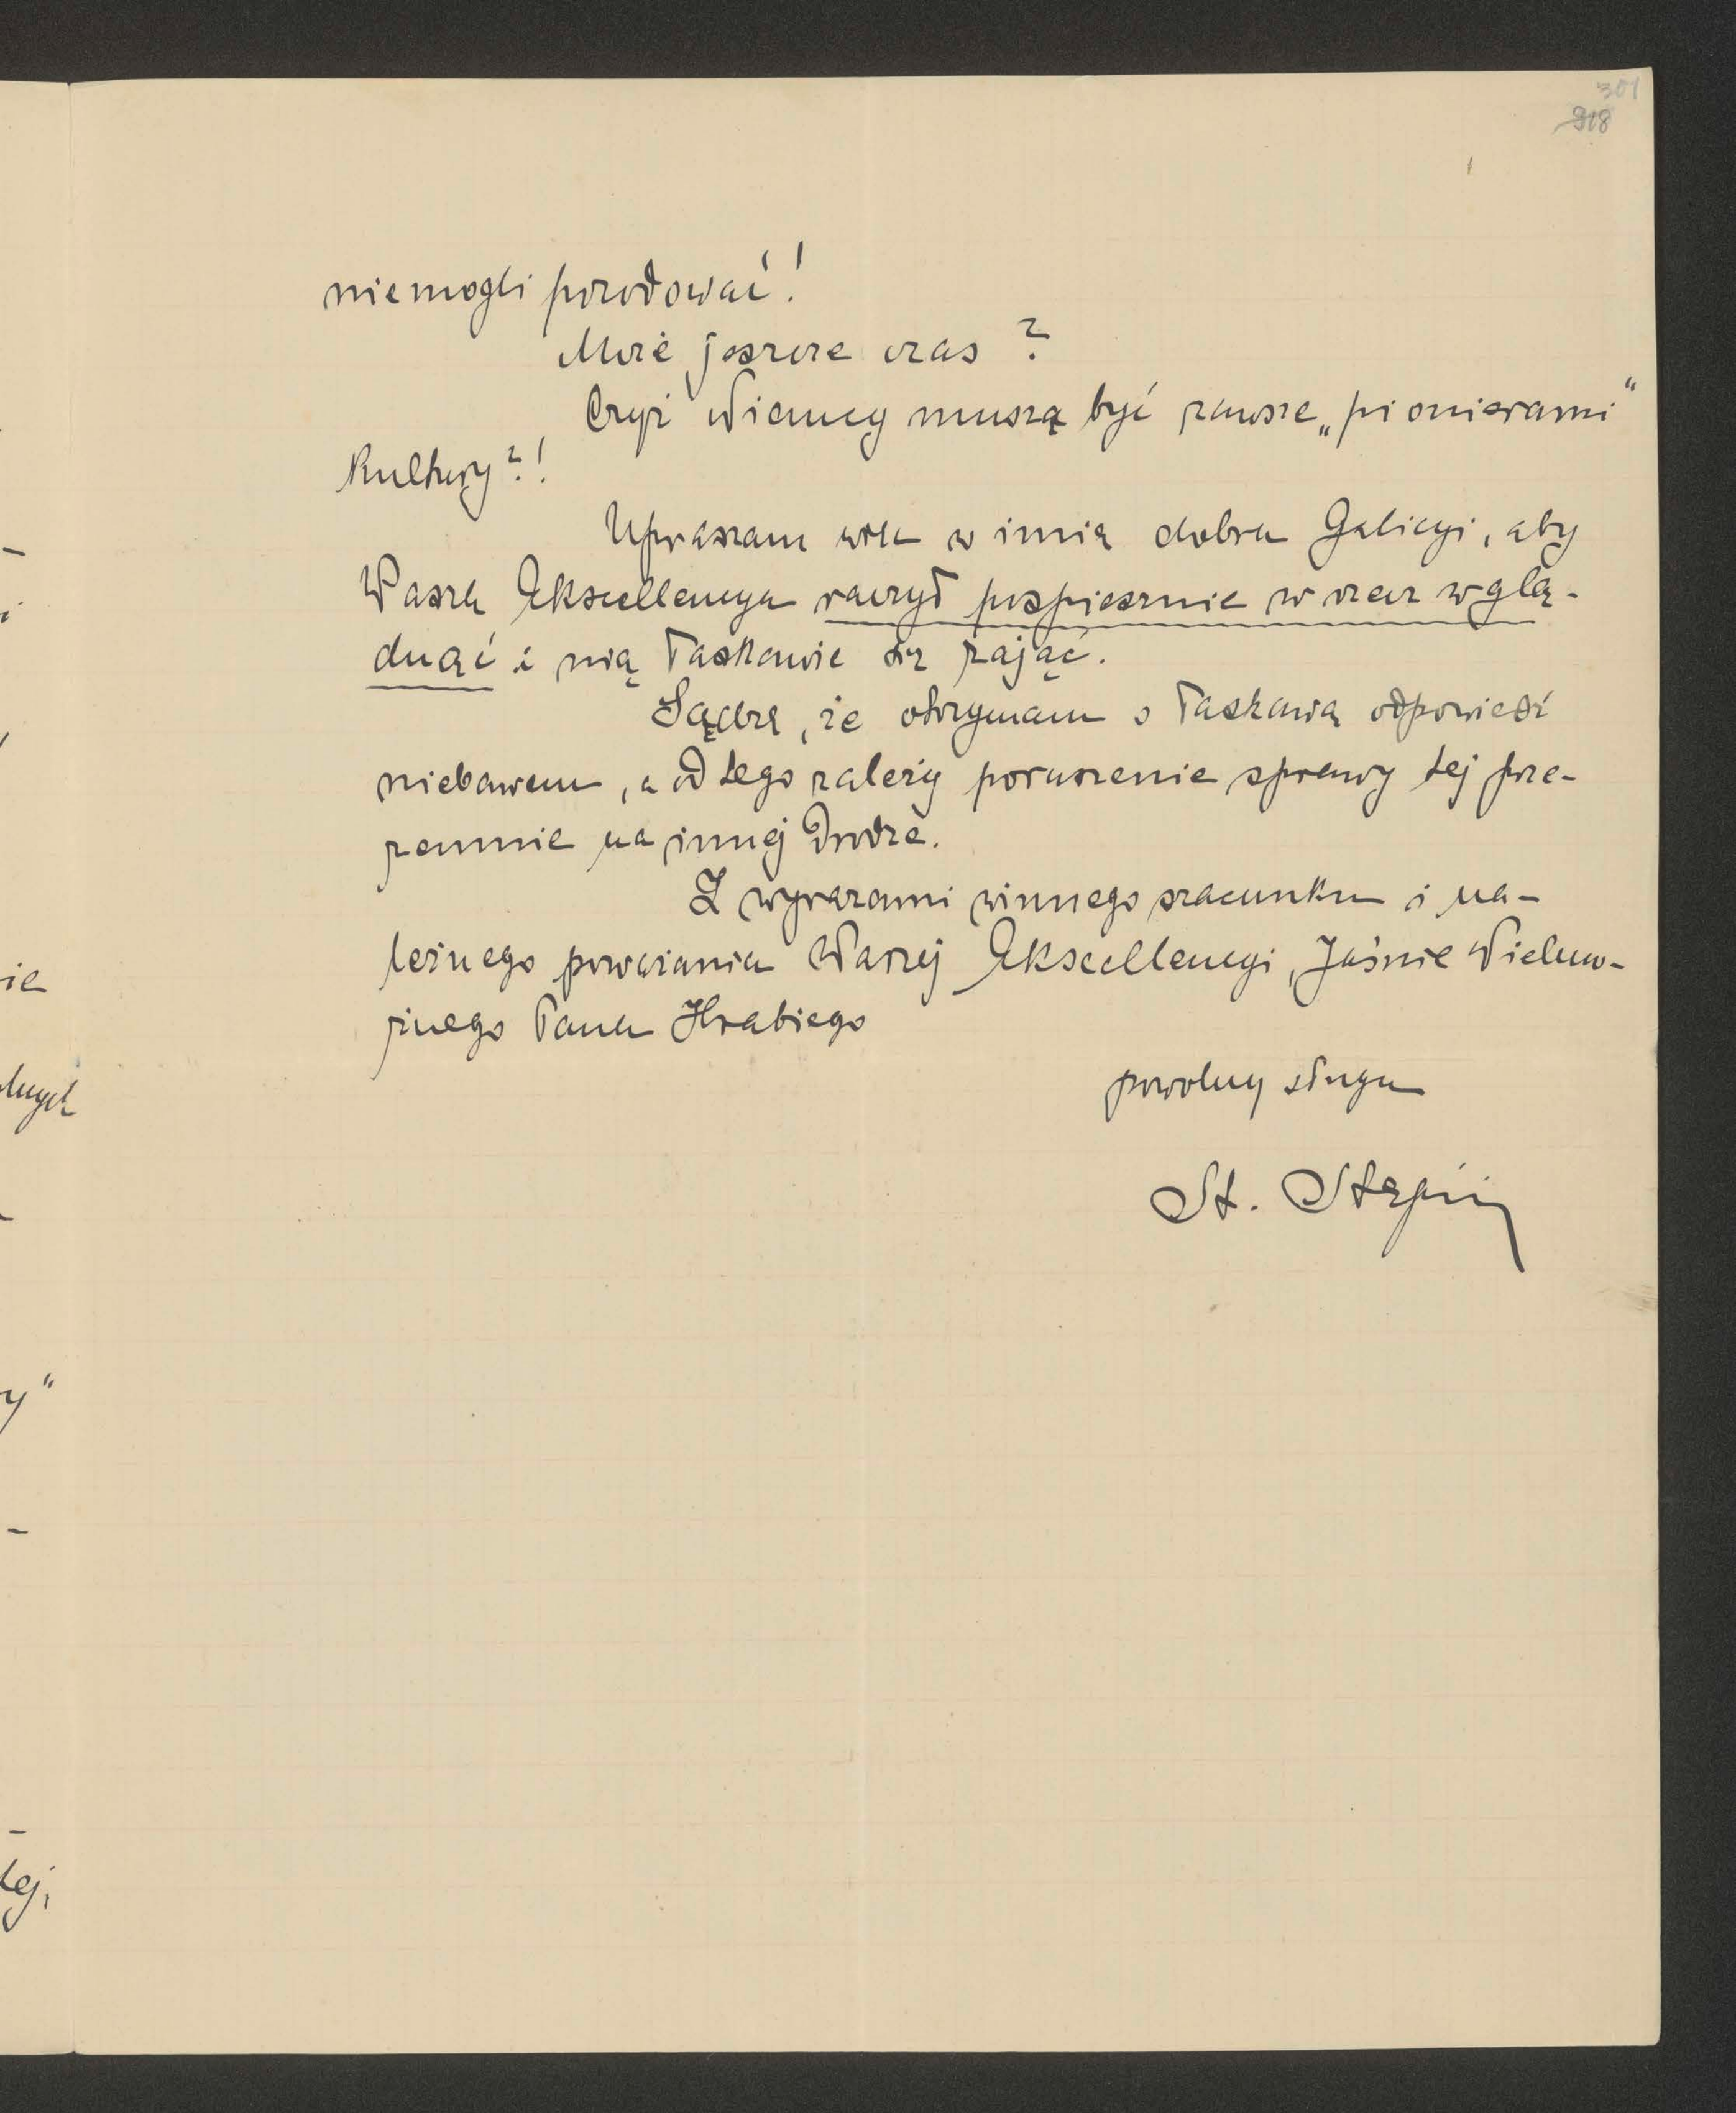 301
318
niemogli porodować!
Może jeszcze czas?
Czyż Niemcy muszą być zawsze „pionierami"
Kultury?!
Upraszam w imię dobra Galicyi, aby
Wasza Ekscellencya raczył pospiesznie w rzecz wglą-
dnąć i nią łaskawie się zająć.
Sądzę, że otrzymam łaskawą odpowiedź
niebawem, a od tego zależy poruszenie sprawy tej prze-
zemnie na innej drodze.
Z wyrazami winnego szacunku i na-
leżnego poważania Waszej Ekscellencyi, Jaśnie Wielmo-
żnego Pana Hrabiego
powolny sługa
St. Stępin
ie
lnych
y"
tej,